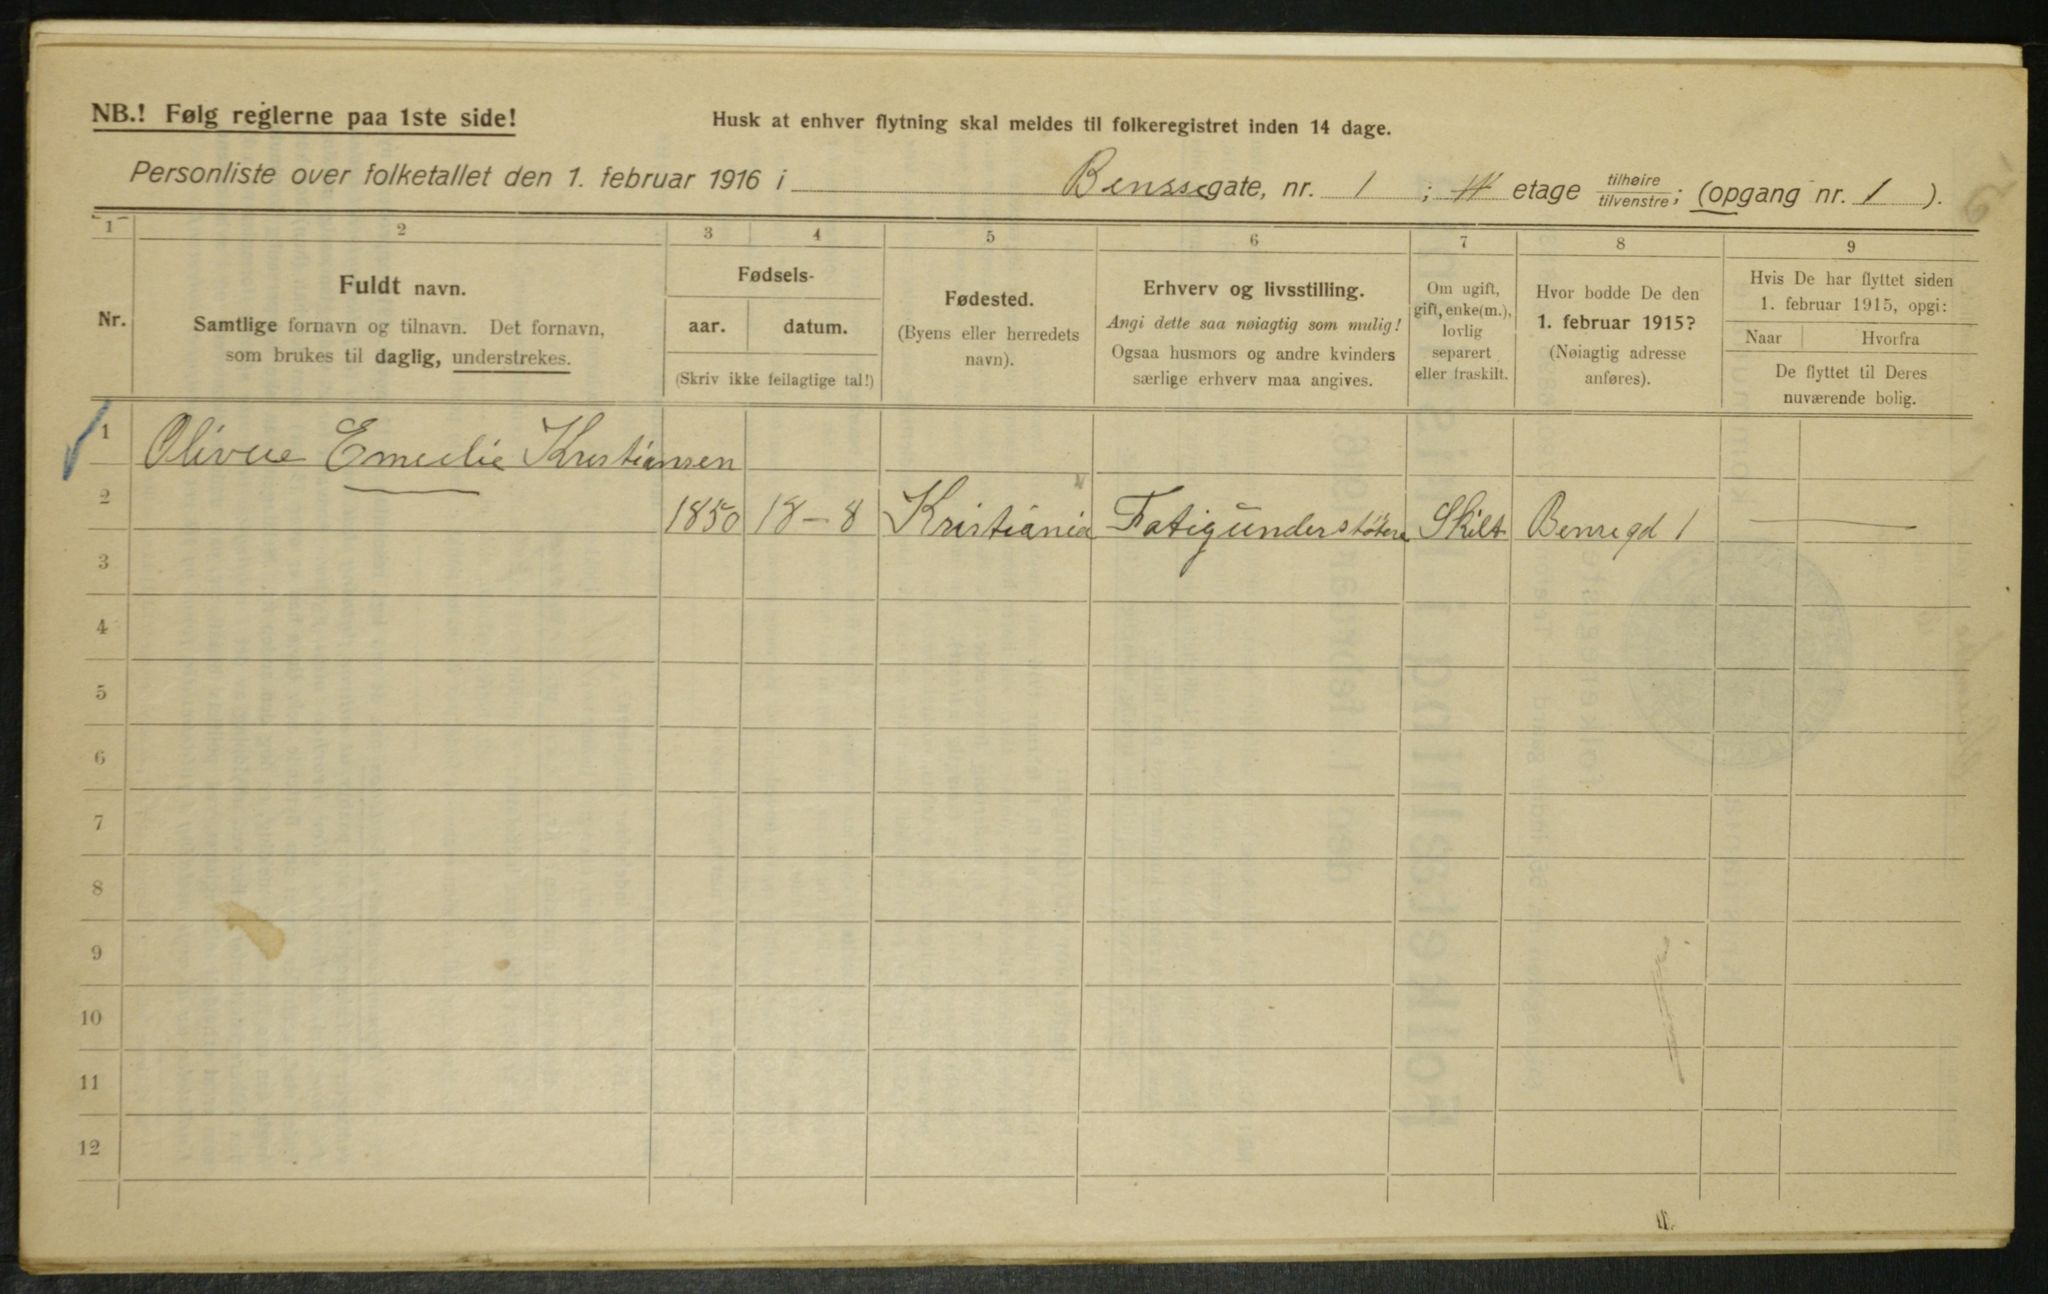 NB.! Følg reglerne paa 1ste side!
Husk at enhver flytning skal meldes til folkeregistret inden 14 dage.
Personliste over folketallet den 1. februar 1916 i Bensegate, nr. 1 ; etage tilhøire tilvenstre ; (opgang nr. 1 ).
1 2 3 4 5 6 7 8 9
Nr.
Fuldt navn.
Samtlige fornavn og tilnavn. Det fornavn,
som brukes til daglig, understrekes.
Fødsels-
aar. datum.
(Skriv ikke feilagtige tal!)
Fødested.
(Byens eller herredets
navn).
Erhverv og livsstilling.
Angi dette saa nøiagtig som mulig!
Ogsaa husmors og andre kvinders
særlige erhverv maa angives.
Om ugift,
gift, enke(m.),
lovlig
separert
eller fraskilt.
Hvor bodde De den
1. februar 1915?
(Nøiagtig adresse
anføres).
Hvis De har flyttet siden
1. februar 1915, opgi:
Naar Hvorfra
De flyttet til Deres
nuværende bolig.
1 Olivue Emelie Kristiansen
2 1850 18-8 Kristiania Fatigunderstøtene Skilt Bensegd 1
3
4
5
6
7
8
9
10
11
12